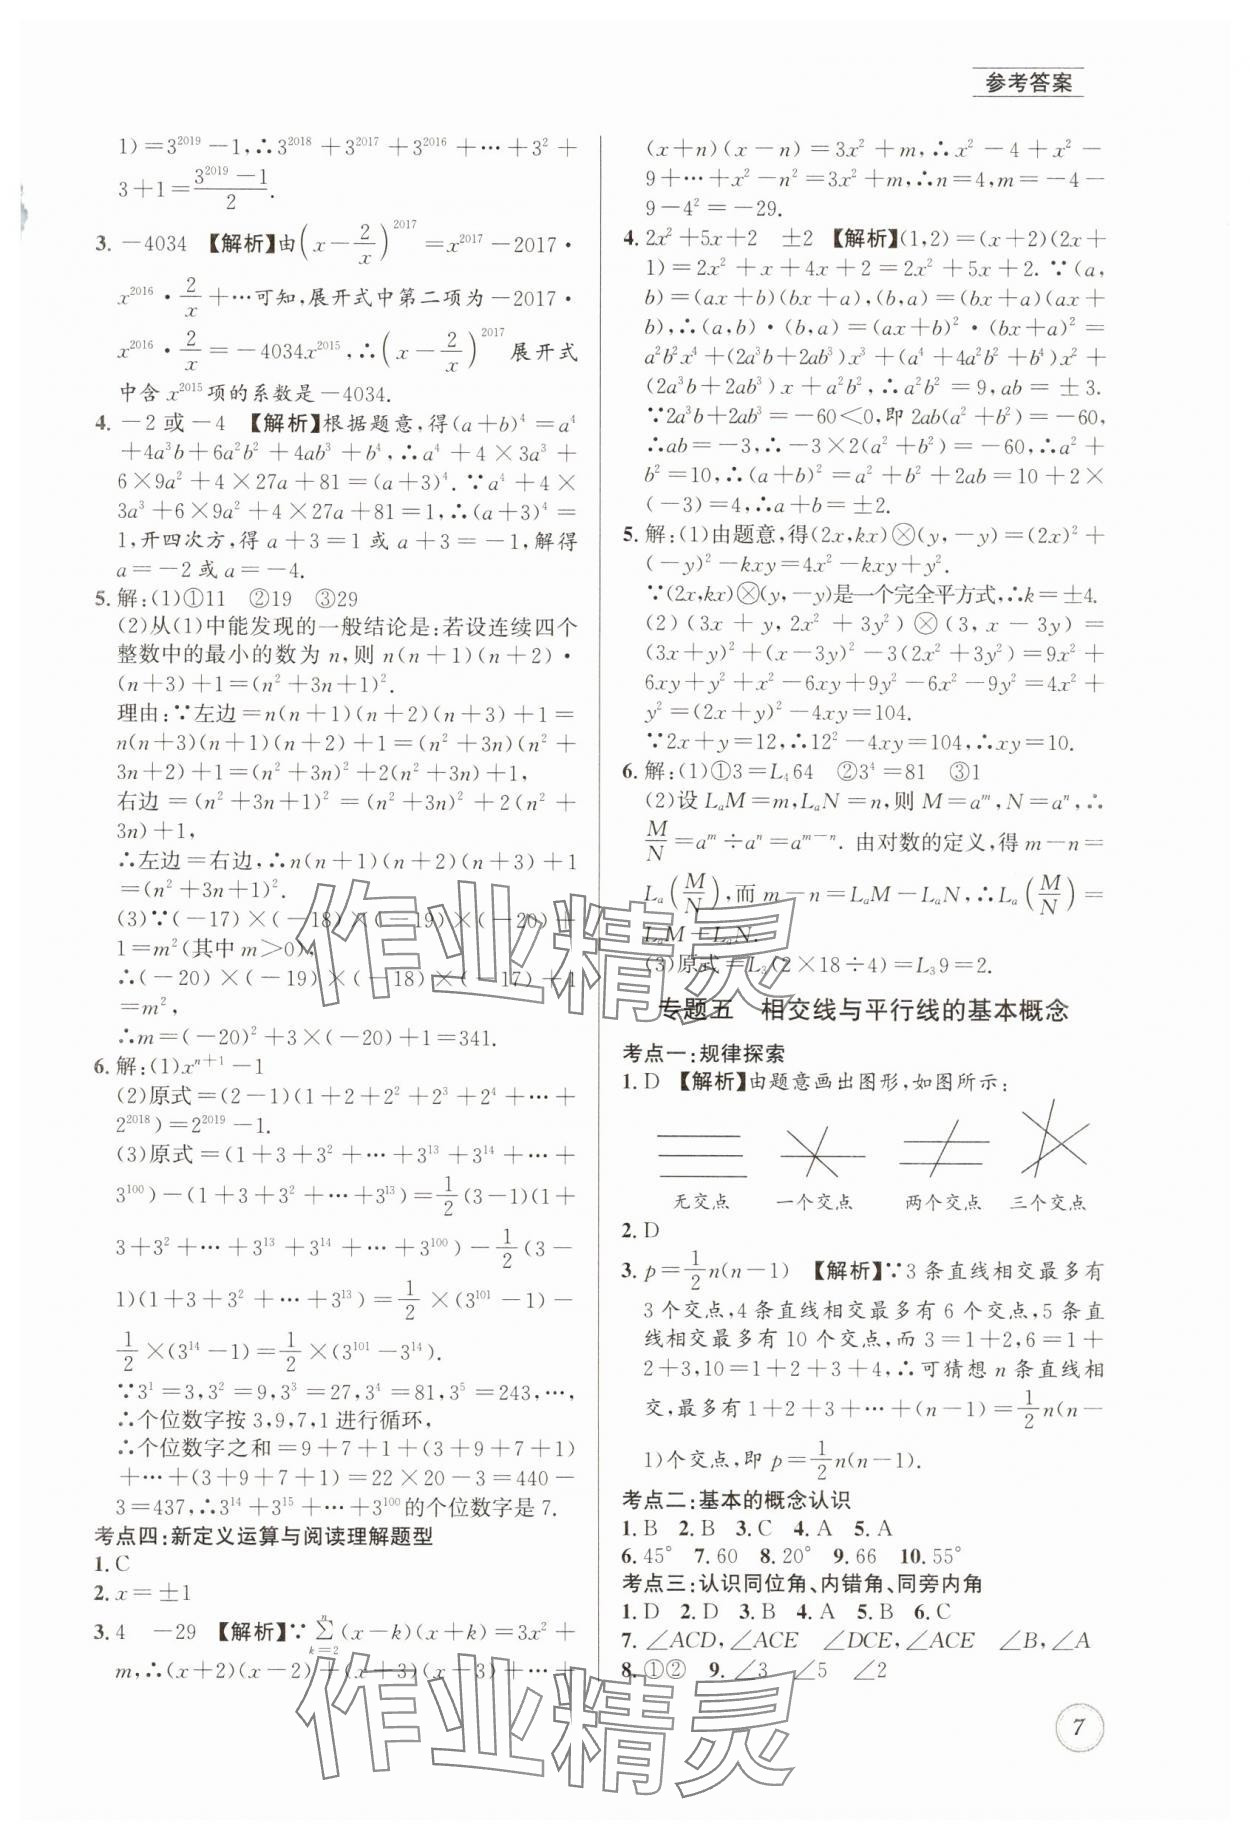 参考答案
1)=3^2019-1,∴3^2018+3^2017+3^2016+…+3^2+
3+1=(3^2019-1)/2.
3. -4034 【解析】由(x-2/x)^2017=x^2017-2017·
x^2016·2/x+…可知,展开式中第二项为-2017·
x^2016·2/x=-4034x^2015,∴(x-2/x)^2017展开式
中含x^2015项的系数是-4034.
4. -2或-4 【解析】根据题意,得(a+b)^4=a^4
+4a^3b+6a^2b^2+4ab^3+b^4,∴a^4+4×3a^3+
6×9a^2+4×27a+81=(a+3)^4.∵a^4+4×
3a^3+6×9a^2+4×27a+81=1,∴(a+3)^4=
1,开四次方,得a+3=1或a+3=-1,解得
a=-2或a=-4.
5. 解:(1)①11 ②19 ③29
(2)从(1)中能发现的一般结论是:若设连续四个
整数中的最小的数为n,则n(n+1)(n+2)·
(n+3)+1=(n^2+3n+1)^2.
理由:∵左边=n(n+1)(n+2)(n+3)+1=
n(n+3)(n+1)(n+2)+1=(n^2+3n)(n^2+
3n+2)+1=(n^2+3n)^2+2(n^2+3n)+1,
右边=(n^2+3n+1)^2=(n^2+3n)^2+2(n^2+
3n)+1,
∴左边=右边,∴n(n+1)(n+2)(n+3)+1
=(n^2+3n+1)^2.
(3)∵(-17)×(-18)×(-19)×(-20)+
1=m^2(其中m>0),
∴(-20)×(-19)×(-18)×(-17)+1
=m^2,
∴m=(-20)^2+3×(-20)+1=341.
6. 解:(1)x^(n+1)-1
(2)原式=(2-1)(1+2+2^2+2^3+2^4+…+
2^2018)=2^2019-1.
(3)原式=(1+3+3^2+…+3^13+3^14+…+
3^100)-(1+3+3^2+…+3^13)=1/2(3-1)(1+
3+3^2+…+3^13+3^14+…+3^100)-1/2(3-
1)(1+3+3^2+…+3^13)=1/2×(3^101-1)-
1/2×(3^14-1)=1/2×(3^101-3^14).
∵3^1=3,3^2=9,3^3=27,3^4=81,3^5=243,…,
∴个位数字按3,9,7,1进行循环,
∴个位数字之和=9+7+1+(3+9+7+1)
+…+(3+9+7+1)=22×20-3=440-
3=437,∴3^14+3^15+…+3^100的个位数字是7.
考点四:新定义运算与阅读理解题型
1. C
2. x=±1
3. 4 -29 【解析】∵∑(k=2,n)(x-k)(x+k)=3x^2+
m,∴(x+2)(x-2)+(x+3)(x-3)+…+
(x+n)(x-n)=3x^2+m,∴x^2-4+x^2-
9+…+x^2-n^2=3x^2+m,∴n=4,m=-4-
9-4^2=-29.
4. 2x^2+5x+2 ±2 【解析】(1,2)=(x+2)(2x+
1)=2x^2+x+4x+2=2x^2+5x+2.∵(a,
b)=(ax+b)(bx+a),(b,a)=(bx+a)(ax+
b),∴(a,b)·(b,a)=(ax+b)^2·(bx+a)^2=
a^2b^2x^4+(2a^3b+2ab^3)x^3+(a^4+4a^2b^2+b^4)x^2+
(2a^3b+2ab^3)x+a^2b^2,∴a^2b^2=9,ab=±3.
∵2a^3b+2ab^3=-60<0,即2ab(a^2+b^2)=-60,
∴ab=-3,∴-3×2(a^2+b^2)=-60,∴a^2+
b^2=10,∴(a+b)^2=a^2+b^2+2ab=10+2×
(-3)=4,∴a+b=±2.
5. 解:(1)由题意,得(2x,kx)⊗(y,-y)=(2x)^2+
(-y)^2-kxy=4x^2-kxy+y^2.
∵(2x,kx)⊗(y,-y)是一个完全平方式,∴k=±4.
(2)(3x+y,2x^2+3y^2)⊗(3,x-3y)=
(3x+y)^2+(x-3y)^2-3(2x^2+3y^2)=9x^2+
6xy+y^2+x^2-6xy+9y^2-6x^2-9y^2=4x^2+
y^2=(2x+y)^2-4xy=104.
∵2x+y=12,∴12^2-4xy=104,∴xy=10.
6. 解:(1)①3=L_4 64 ②3^4=81 ③1
(2)设L_aM=m,L_aN=n,则M=a^m,N=a^n,∴
M/N=a^m÷a^n=a^(m-n).由对数的定义,得m-n=
L_a(M/N),而m-n=L_aM-L_aN,∴L_a(M/N)=
L_aM-L_aN.
(3)原式=L_3(2×18÷4)=L_3 9=2.
专题五 相交线与平行线的基本概念
考点一:规律探索
1. D 【解析】由题意画出图形,如图所示:
无交点 一个交点 两个交点 三个交点
2. D
3. p=1/2n(n-1) 【解析】∵3条直线相交最多有
3个交点,4条直线相交最多有6个交点,5条直
线相交最多有10个交点,而3=1+2,6=1+
2+3,10=1+2+3+4,∴可猜想n条直线相
交,最多有1+2+3+…+(n-1)=1/2n(n-
1)个交点,即p=1/2n(n-1).
考点二:基本的概念认识
1. B 2. B 3. C 4. A 5. A
6. 45° 7. 60 8. 20° 9. 66 10. 55°
考点三:认识同位角、内错角、同旁内角
1. D 2. D 3. B 4. A 5. B 6. C
7. ∠ACD,∠ACE ∠DCE,∠ACE ∠B,∠A
8. ①② 9. ∠3 ∠5 ∠2
作业精灵
作业精灵
7